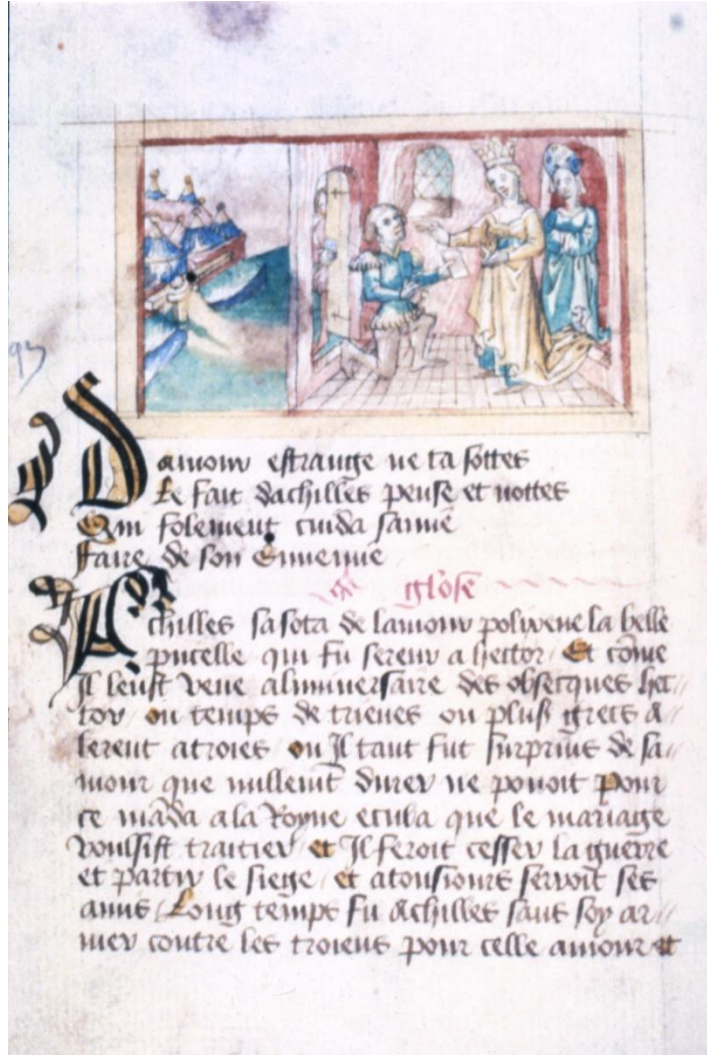 93
Damour estrange ne ta sottes
Le fait dachilles pense et nottes
Qui folement cuida samie
Faire de son ennemie
glose
Achilles sasota de lamour polixene la belle
pucelle qui fu sereur a hector Et cōme
Il leust veue alaniversaire des obseques hec
tor ou temps de trieues ou plus̉ grecs a
lerent atroies ou Il tant fut surprins de sa
mour que nullemt̄ durer ne pouoit pour
ce māda ala Royne ecuba que le mariage
voulsist traitier et Il feroit cesser la guerre
et partir le siege et atousiours seroit ses
amis Long temps fu Achilles sans soy ar
mer contre les troiens pour celle amour et